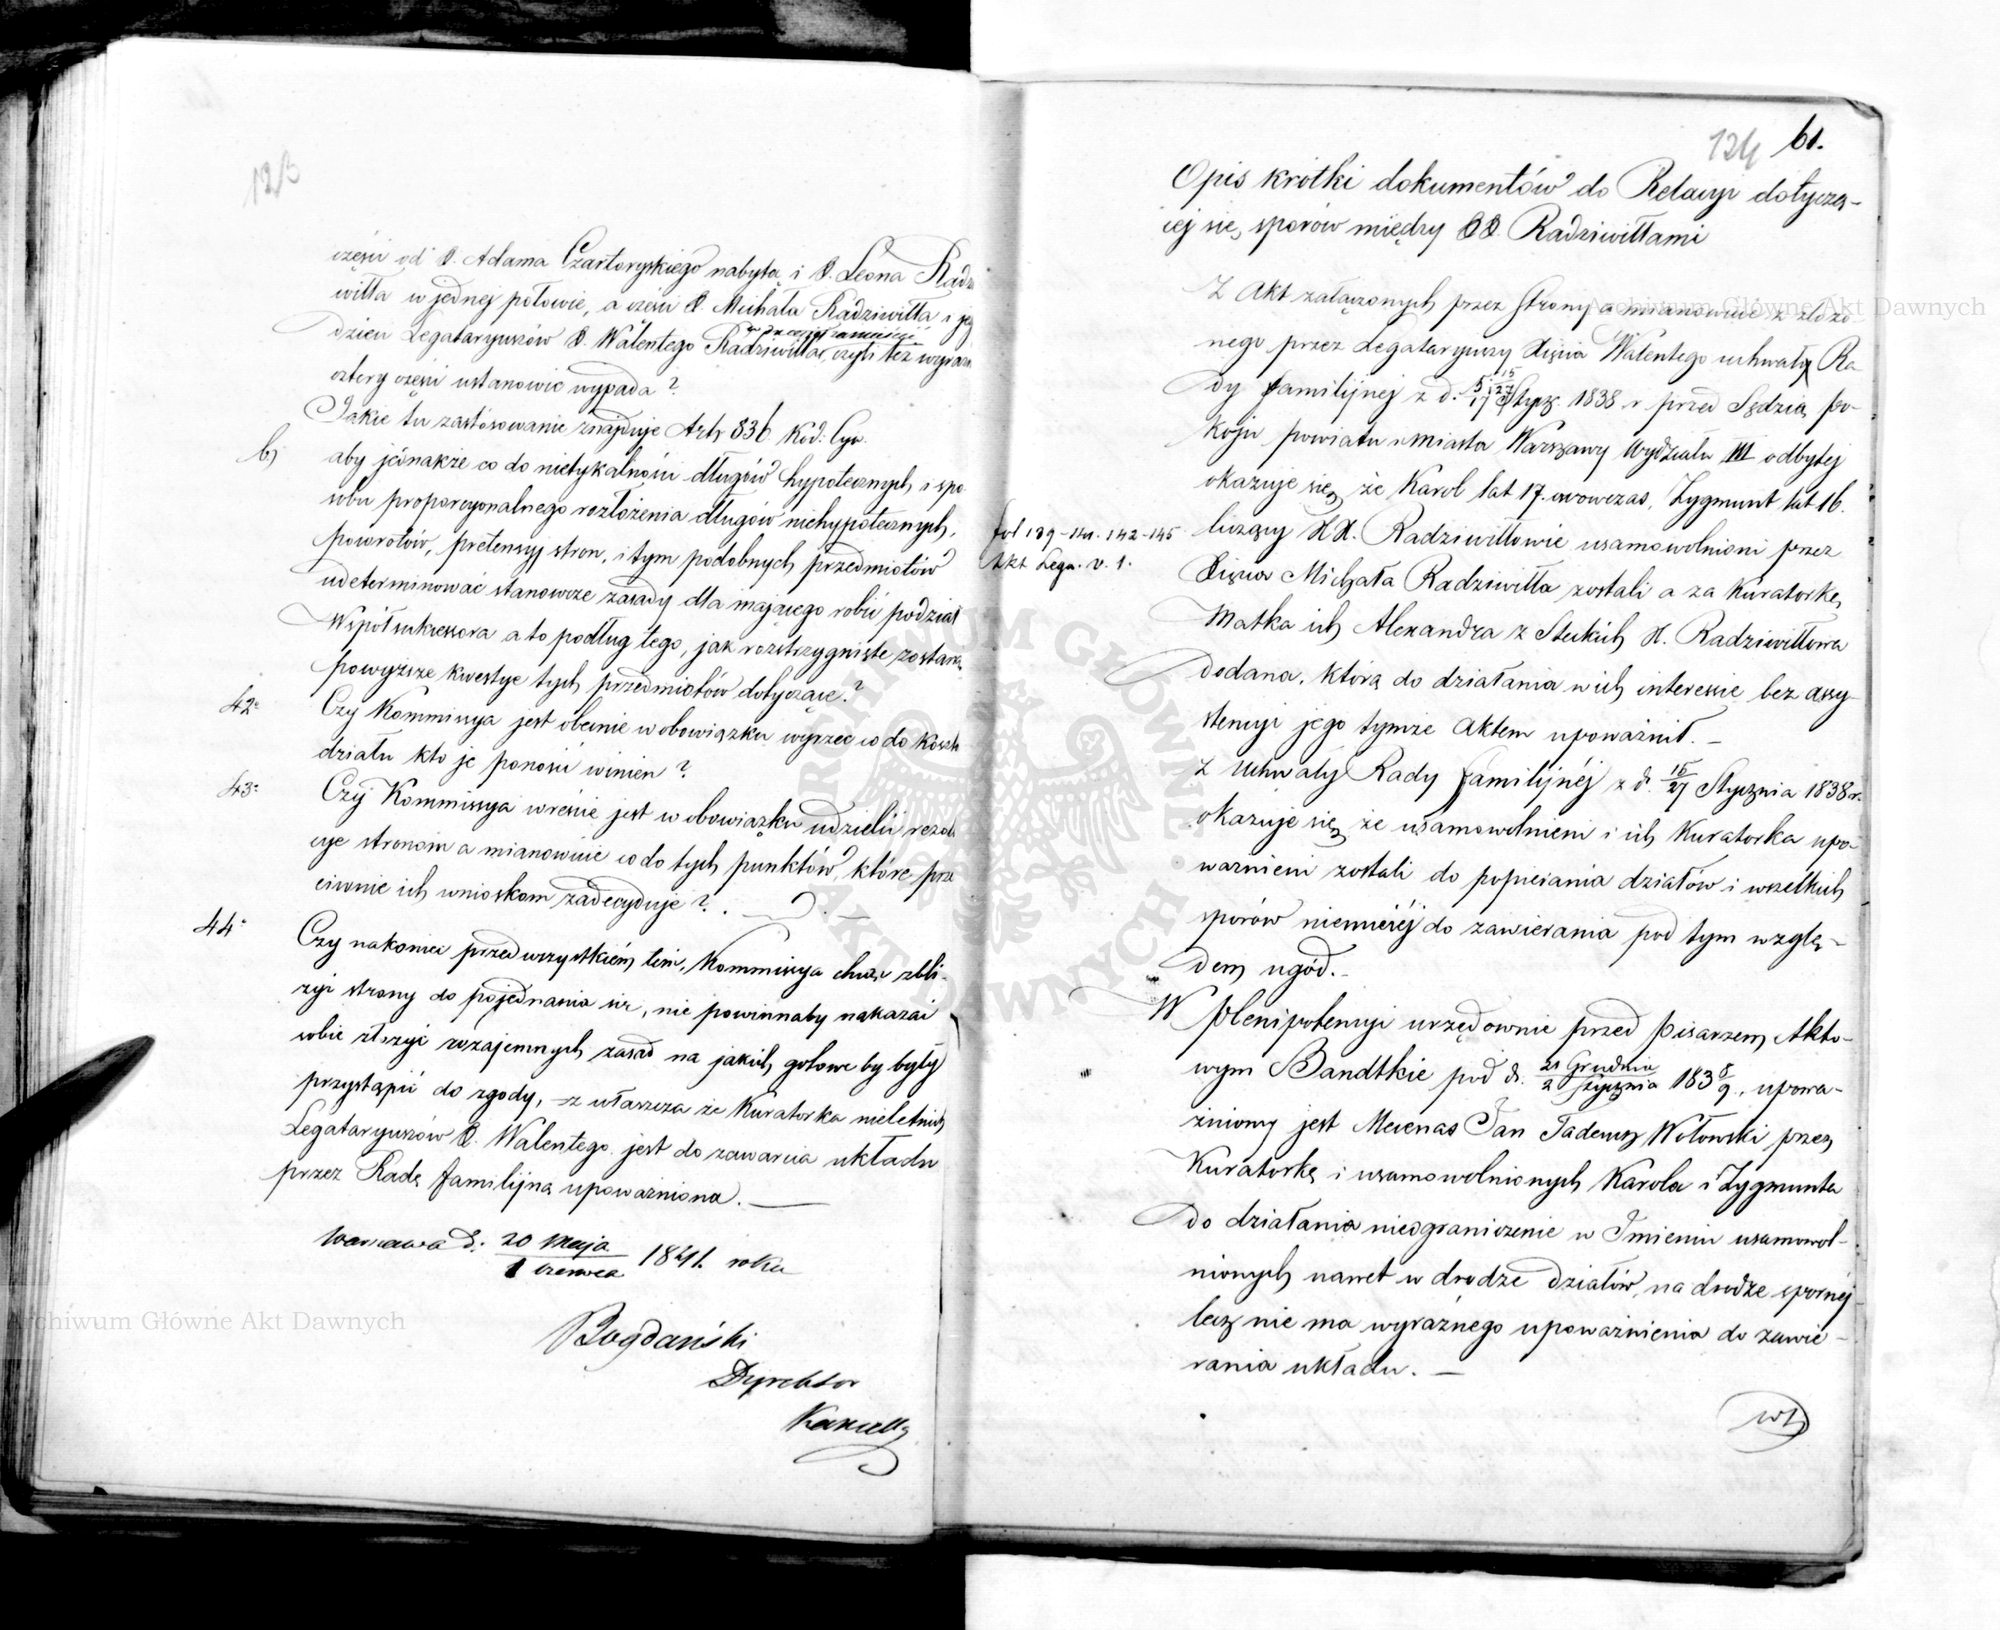 123
części od X. Adama Czartoryskiego nabytą i X. Leona Radzi
wiłła w jednej połowie, a części X. Michała Radziwiłła i
dzieci Legataryuszów X. Walentego Radziwiłła, czyli też
cztery części ustanowić wypada?
Jakie tu zastósowanie znajduje Art. 836 Kod: Cyw.
b) aby jednakże co do nietykalności długów hypotecznych, i spo
sobu proporcyonalnego rozłożenia długów niehypotecznych,
powrotów, pretensyj stron, i tym podobnych przedmiotów
udeterminować stanowcze zasady dla mającego robić podział
Współsukcessora a to podług tego, jak rozstrzygnięte zostaną
powyższe kwestye tych przedmiotów dotyczące?
42. Czy Kommissya jest obecnie w obowiązku wyrzec co do koszt
działu kto je ponosić winien?
43. Czy Kommissya wreście jest w obowiązku udzielić rezol
cye stronom a mianowicie co do tych punktów, które prze
ciwnie ich wnioskom zadecyduje?
44. Czy nakoniec przed wszystkiém tém, Kommissya chcąc zbli-
żyć strony do pojednania się, nie powinnaby nakazać
sobie złożyć wzajemnych zasad na jakich gotowe by były
przystąpić do zgody, — zwłaszcza że Kuratorka nieletnich
Legataryuszów X. Walentego jest do zawarcia układu
przez Radę familijną upoważniona. —
Warszawa d. 20 Maja / 1 Czerwca 1841. roku
Bogdański
Dyrektor
124 61.
Opis krótki dokumentów do Relacyi dotyczą-
cej się sporów między XX. Radziwiłłami
Z Akt załączonych przez Strony a mianowicie z złożo-
nego przez Legataryuszy Xięcia Walentego uchwały Ra
dy familijnej z d. 15/27 Stycz. 1838 r przed Sędzią po-
koju powiatu i miasta Warszawy Wydziału III odbytej
okazuje się, że Karol lat 17. owowczas, Zygmunt lat 16.
liczący XX. Radziwiłłowie usamowolnioni przez
fol 139-141. 142-145
Akt Lega. v. 1.
Xięcia Michała Radziwiłła zostali a za Kuratorkę
Matka ich Alexandra z Steckich X. Radziwiłłowa
dodana, którą do działania w ich interessie bez assy-
stencyi jego tymże Aktem upoważnił. —
Z Uchwały Rady familijnéj z d. 15/27 Stycznia 1838 r.
okazuje się że usamowolnieni i ich Kuratorka upo-
ważnieni zostali do popierania działów i wszelkich
sporów niemniéj do zawierania pod tym wzglę-
dem ugód. —
W plenipotencyi urzędownie przed pisarzem Akto-
wym Bandtkie pod d. 21 Grudnia / 2 Stycznia 183 8/9, upowa-
żniony jest Mecenas Jan Tadeusz Wołowski przez
Kuratorkę i usamowolnionych Karola i Zygmunta
do działania nieograniczenie w Imieniu usamowol-
nionych nawet w drodze działów, na drodze spornéj
lecz nie ma wyraźnego upoważnienia do zawie-
rania układu. —
Archiwum Główne Akt Dawnych
Archiwum Główne Akt Dawnych
ARCHIWUM GŁÓWNE AKT DAWNYCH